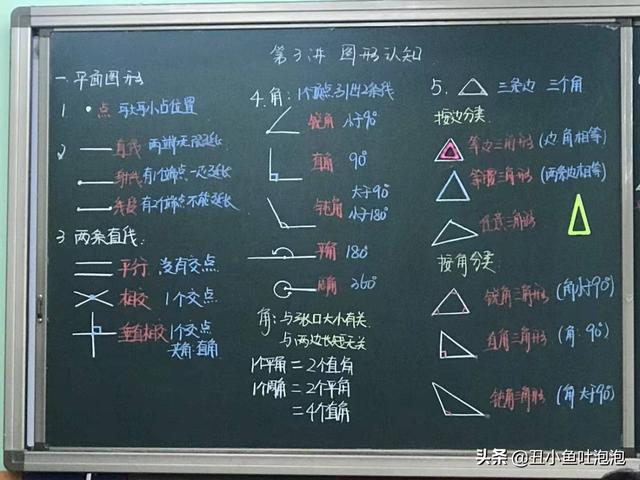 第3讲 图形认知
一.平面图形
1. 点 可大可小占位置
2
直线 两端无限延长
射线 有1个端点 一边延长
线段 有2个端点 不能延长
3 两条直线.
平行 没有交点
相交 1个交点
垂直相交 1个交点
夹角:直角
4.角: 1个顶点引出2条线
锐角 小于90°
直角 90°
钝角 大于90°
小于180°
平角 180°
周角 360°
角:与张口大小有关.
与两边长短无关
1个平角=2个直角
1个周角=2个平角
=4个直角
5. 三条边 三个角
按边分类.
等边三角形 (边.角相等)
等腰三角形 (两条边相等)
任意三角形
按角分类.
锐角三角形 (角小于90°)
直角三角形 (角:90°)
钝角三角形 (角大于90°)
头条 @丑小鱼吐泡泡